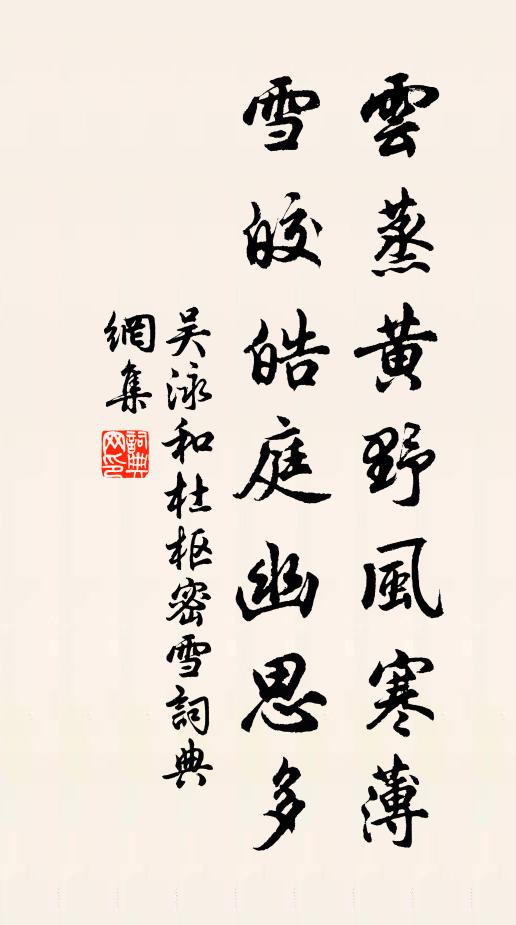 雲蒸黄野風寒薄
雪皎皓庭幽思多
吴泳和杜枢密雪詞典
網集
詞典
网印